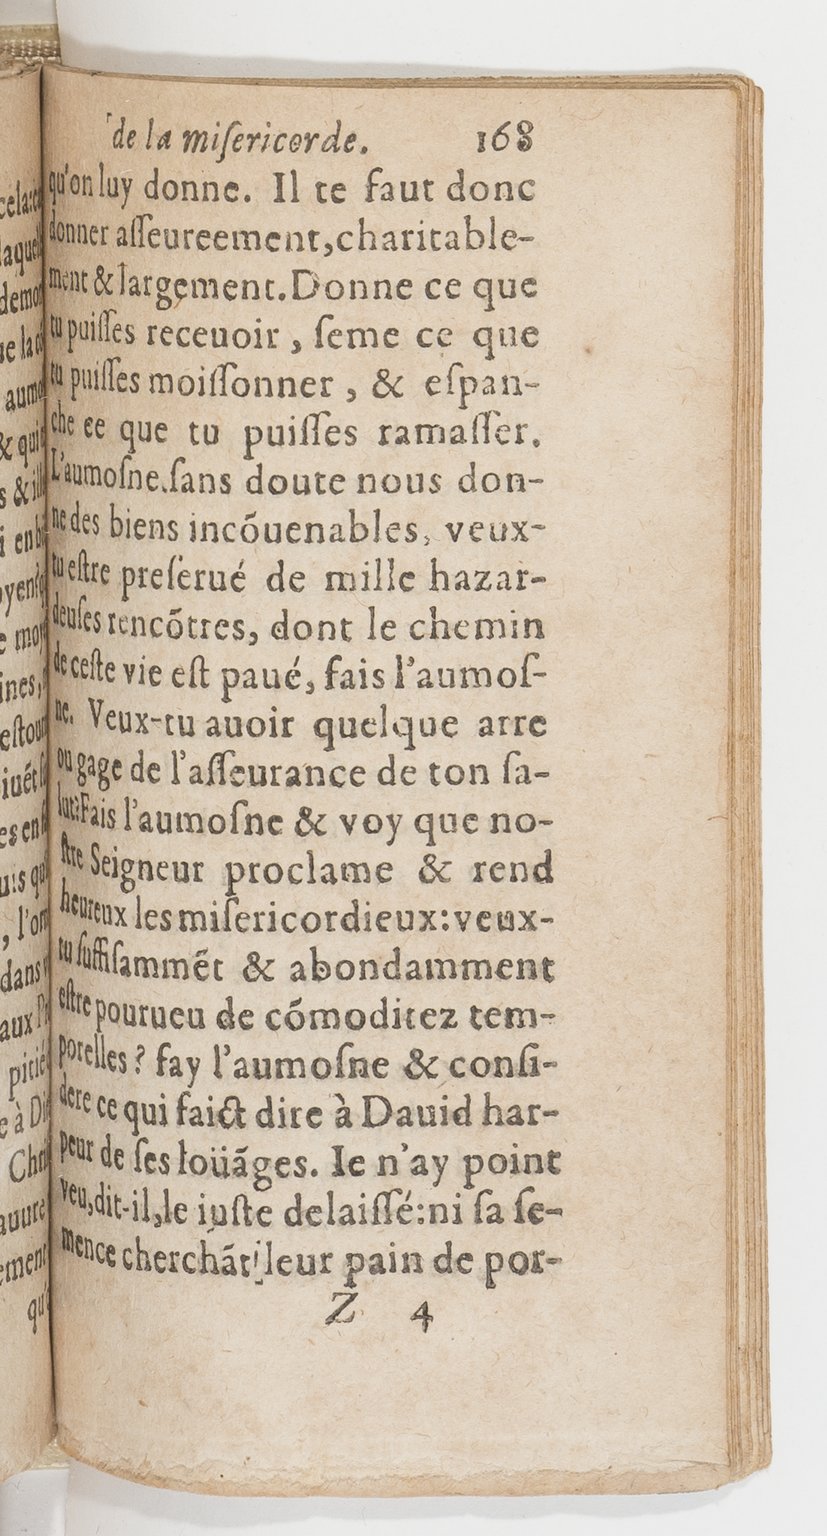 de la miſericorde. 168
qu'on luy donne. Il te faut donc
donner aſſeureement, charitable-
ment & largement. Donne ce que
tu puiſſes receuoir, ſeme ce que
tu puiſſes moiſſonner, & eſpan-
che ce que tu puiſſes ramaſſer.
L'aumoſne ſans doute nous don-
ne des biens incõuenables, veux-
tu eſtre preſerué de mille hazar-
deuſes rencõtres, dont le chemin
de ceſte vie eſt paué, fais l'aumoſ-
ne. Veux-tu auoir quelque arre
ou gage de l'aſſeurance de ton ſa-
lut: Fais l'aumoſne & voy que no-
ſtre Seigneur proclame & rend
heureux les miſericordieux: veux-
tu ſuffiſammẽt & abondamment
eſtre pourueu de cõmoditez tem-
porelles? fay l'aumoſne & conſi-
dere ce qui faict dire à Dauid har-
peur de ſes loüãges. Ie n'ay point
veu, dit-il, le iuſte delaiſſé: ni ſa ſe-
mence cherchãt leur pain de por-
Z 4